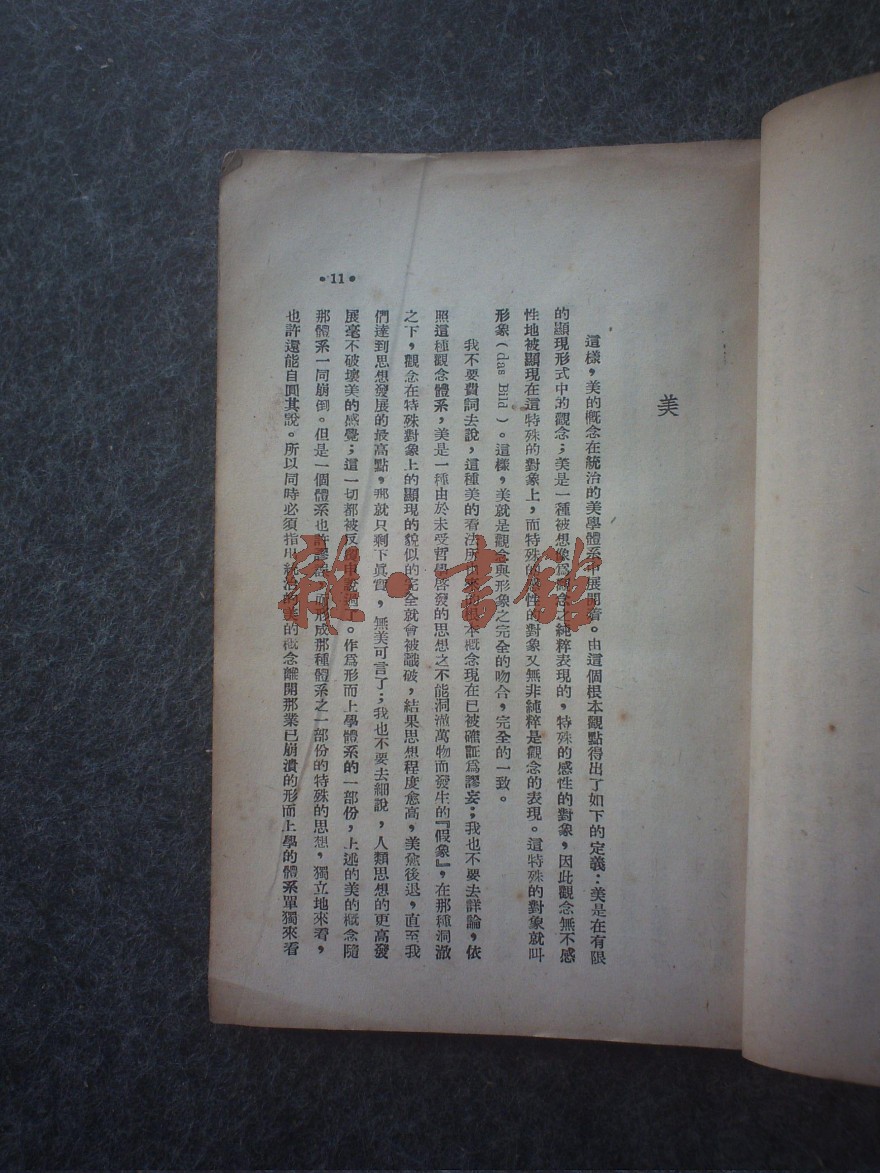 美
這樣，美的概念在統治的美學體系中展開着。由這個根本觀點得出了如下的定義：美是在有限
的顯現形式中的觀念；美是一種被想像爲觀念之純粹表現的，特殊的感性的對象，因此觀念無不感
性地被顯現在這特殊的對象上，而特殊的感性的對象又無非純粹是觀念的表現。這特殊的對象就叫
形象（das Bild）。這樣，美就是觀念與形象之完全的吻合，完全的一致。
我不要費詞去說，這種美的看法所由來的根本概念現在已被確証爲謬妄；我也不要去詳論，依
照這種觀念體系，美是一種由於未受哲學啓發的思想之不能洞澈萬物而發生的『假象』，在那種洞澈
之下，觀念在特殊對象上的顯現的貌似的完全就會被識破，結果思想程度愈高，美愈後退，直至我
們達到思想發展的最高點，那就只剩下眞實，無美可言了；我也不要去細說，人類思想的更高發
展毫不破壞美的感覺；這一切都被反覆申說過了。作爲形而上學體系的一部份，上述的美的概念隨
那體系一同崩倒。但是一個體系也許謬，而形成那種體系之一部份的特殊的思想，獨立地來看，
也許還能自圓其說。所以同時必須指出統治的美的概念離開那業已崩潰的形而上學的體系單獨來看
•11•
雜·書館